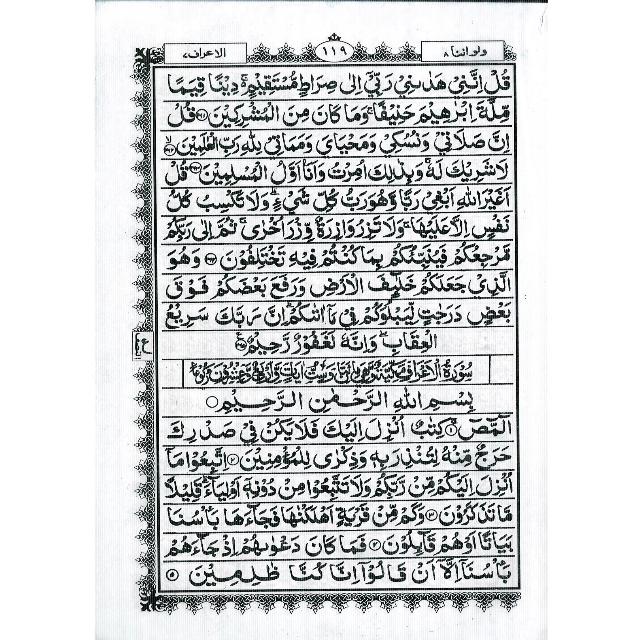 ولو اننا ٨ ١١٩ الاعراف ٧
قُلْ اِنَّنِيْ هَدٰىنِيْ رَبِّيْ اِلٰى صِرَاطٍ مُّسْتَقِيْمٍ ۚ دِيْنًا قِيَمًا
مِّلَّةَ اِبْرٰهِيْمَ حَنِيْفًا ۚ وَمَا كَانَ مِنَ الْمُشْرِكِيْنَ ١٦١ قُلْ
اِنَّ صَلَاتِيْ وَنُسُكِيْ وَمَحْيَايَ وَمَمَاتِيْ لِلّٰهِ رَبِّ الْعٰلَمِيْنَ ١٦٢
لَا شَرِيْكَ لَهٗ ۚ وَبِذٰلِكَ اُمِرْتُ وَاَنَا اَوَّلُ الْمُسْلِمِيْنَ ١٦٣ قُلْ
اَغَيْرَ اللّٰهِ اَبْغِيْ رَبًّا وَّهُوَ رَبُّ كُلِّ شَيْءٍ ۗ وَلَا تَكْسِبُ كُلُّ
نَفْسٍ اِلَّا عَلَيْهَا ۚ وَلَا تَزِرُ وَازِرَةٌ وِّزْرَ اُخْرٰى ۚ ثُمَّ اِلٰى رَبِّكُمْ
مَّرْجِعُكُمْ فَيُنَبِّئُكُمْ بِمَا كُنْتُمْ فِيْهِ تَخْتَلِفُوْنَ ١٦٤ وَهُوَ
الَّذِيْ جَعَلَكُمْ خَلٰٓئِفَ الْاَرْضِ وَرَفَعَ بَعْضَكُمْ فَوْقَ
بَعْضٍ دَرَجٰتٍ لِّيَبْلُوَكُمْ فِيْ مَآ اٰتٰىكُمْ ۗ اِنَّ رَبَّكَ سَرِيْعُ
الْعِقَابِ ۖ وَاِنَّهٗ لَغَفُوْرٌ رَّحِيْمٌ ١٦٥
سُوْرَةُ الْاَعْرَافِ مَكِّيَّةٌ وَّهِيَ مِائَتَا وَسِتُّ اٰيَاتٍ وَّاَرْبَعٌ وَّعِشْرُوْنَ رُكُوْعًا
بِسْمِ اللّٰهِ الرَّحْمٰنِ الرَّحِيْمِ
الٓمّٓصٓ ١ كِتٰبٌ اُنْزِلَ اِلَيْكَ فَلَا يَكُنْ فِيْ صَدْرِكَ
حَرَجٌ مِّنْهُ لِتُنْذِرَ بِهٖ وَذِكْرٰى لِلْمُؤْمِنِيْنَ ٢ اِتَّبِعُوْا مَآ
اُنْزِلَ اِلَيْكُمْ مِّنْ رَّبِّكُمْ وَلَا تَتَّبِعُوْا مِنْ دُوْنِهٖٓ اَوْلِيَآءَ ۗ قَلِيْلًا
مَّا تَذَكَّرُوْنَ ٣ وَكَمْ مِّنْ قَرْيَةٍ اَهْلَكْنٰهَا فَجَآءَهَا بَاْسُنَا
بَيَاتًا اَوْ هُمْ قَآئِلُوْنَ ٤ فَمَا كَانَ دَعْوٰىهُمْ اِذْ جَآءَهُمْ
بَاْسُنَآ اِلَّآ اَنْ قَالُوْٓا اِنَّا كُنَّا ظٰلِمِيْنَ ٥